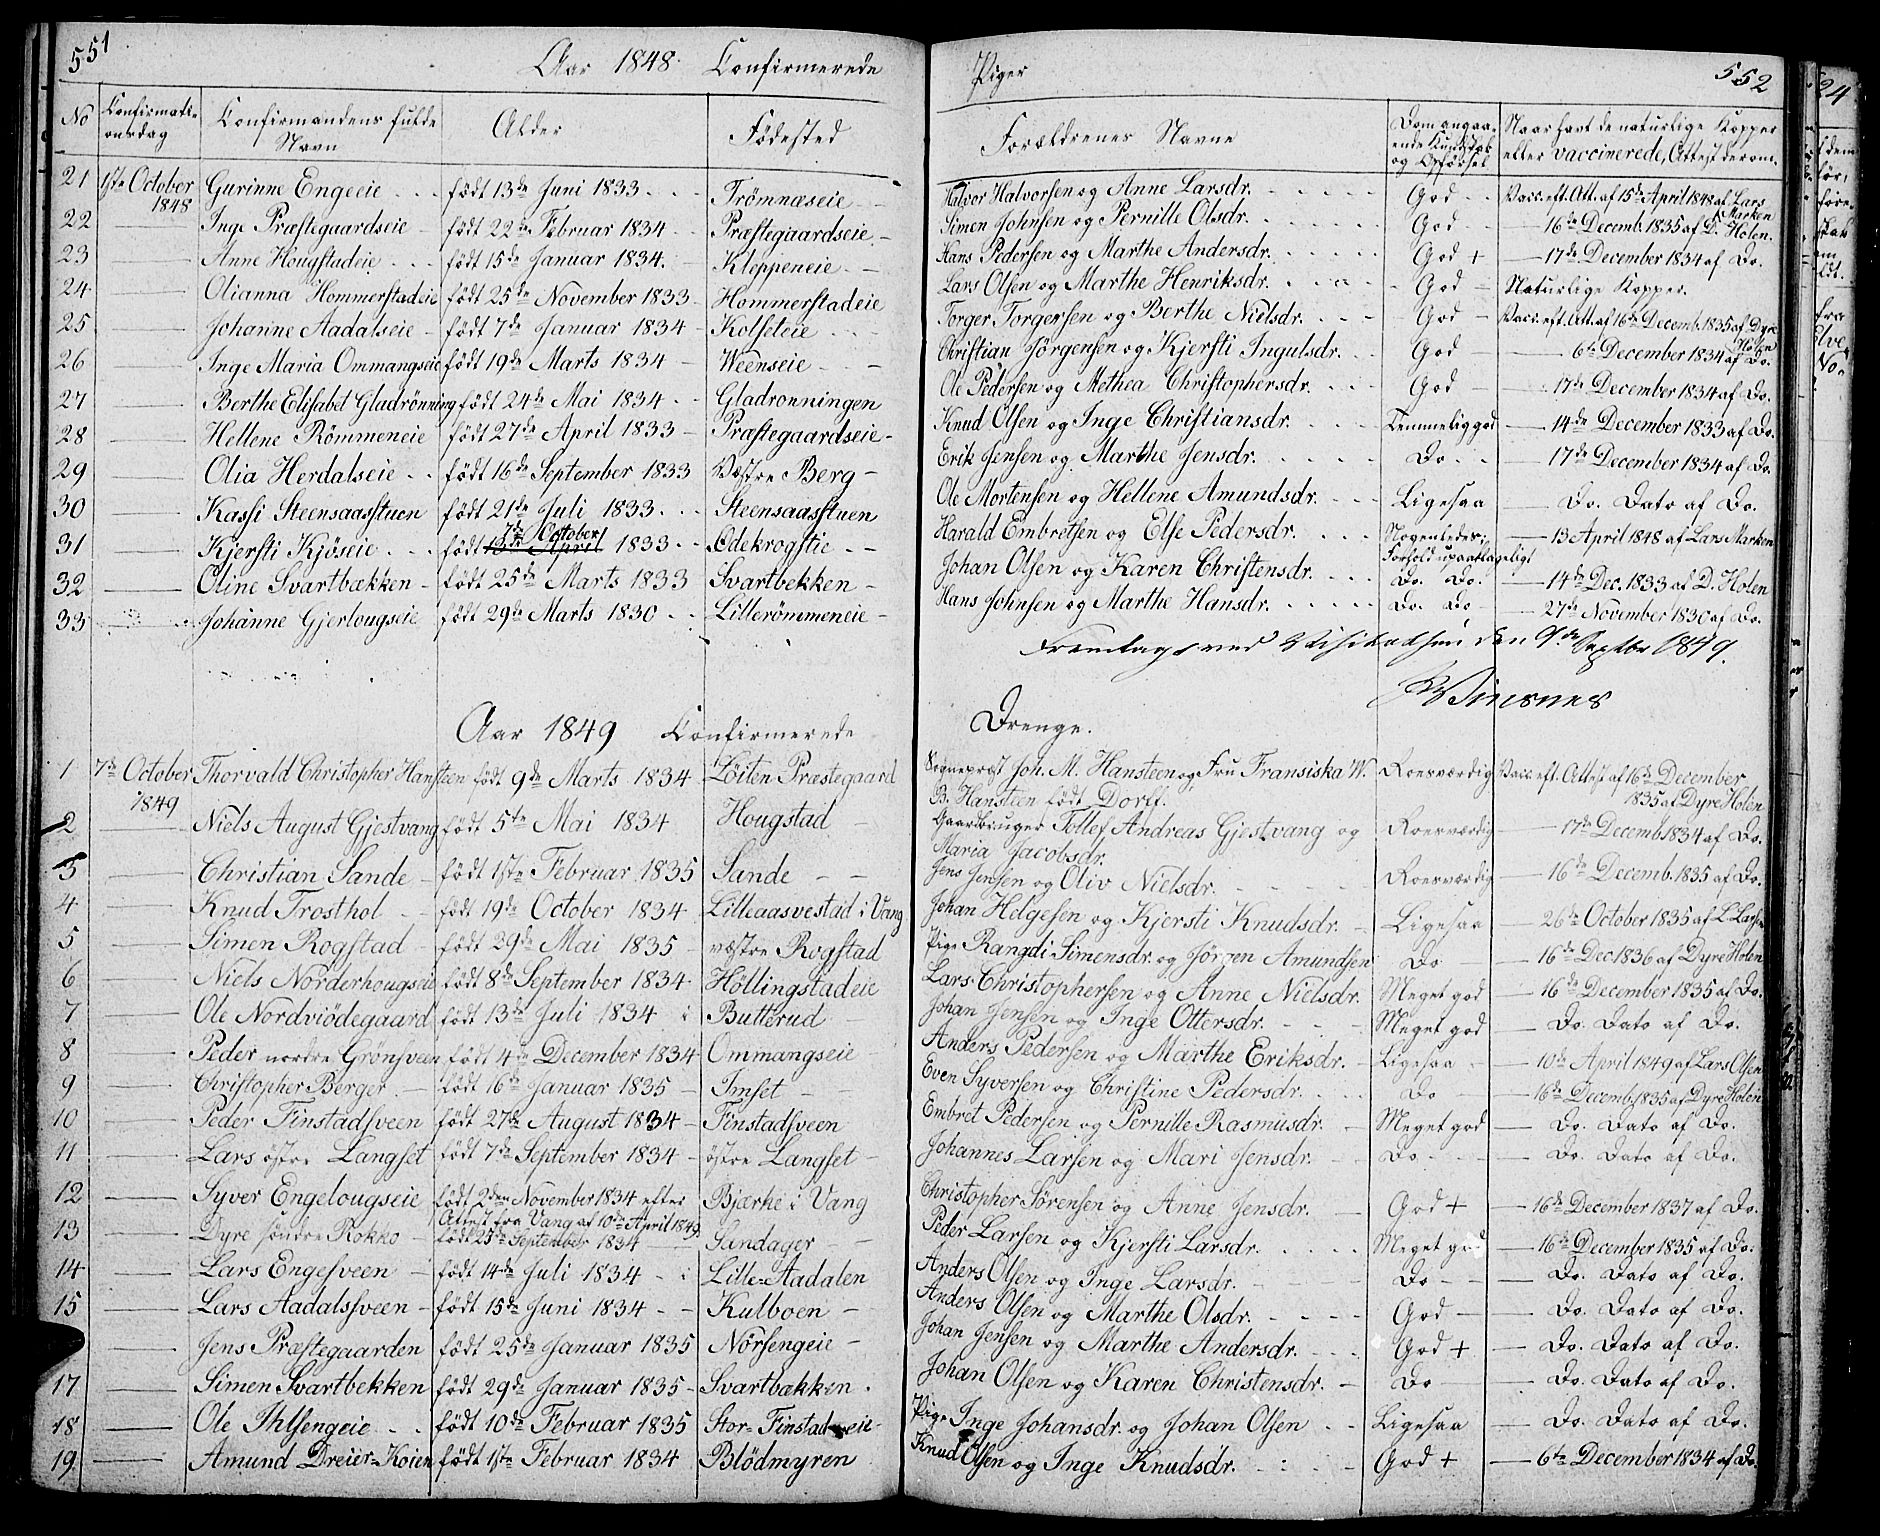 551
Aar 1848. Confirmerede
No Confirmati-onsdag Confirmandens fulde Navn Alder Födested
21 1ste October 1848 Gurinne Engeeie födt 13de Juni 1833 Trömnæseie
22 Inge Præstegaardseie födt 22de Februar 1834 Præstegaardseie
23 Anne Hougstadeie födt 15de Januar 1834. Kleppeneie
24 Olianna Hommerstadeie födt 25de November 1833 Hommerstadeie
25 Johanne Aadalseie födt 7de Januar 1834 Kolseteie
26 Inge Maria Ommangseie födt 19de Marts 1834 Weenseie
27 Berthe Elisabet Gladrönning födt 24de Mai 1834 Gladronningen
28 Hellene Römmeneie födt 27de April 1833 Præstegaardseie
29 Olia Herdalseie födt 16de September 1833 Væstre Berg
30 Kassi Steensaasstuen födt 21de Juli 1833 Steensaasstuen
31 Kjersti Kjöseie födt 7de October 1833 Ödekrogstie
32 Oline Svartbækken födt 25de Marts 1833 Svartbekken
33 Johanne Gjerlougseie födt 29de Marts 1830 Lillerömmeneie
Aar 1849 Confirmerede
1 7de October 1849 Thorvald Christopher Hansteen födt 9de Marts 1834 Löiten Præstegaard
2 Niels August Gjestvang födt 5te Mai 1834 Hougstad
3 Christian Sande födt 1ste Februar 1835 Sande
4 Knud Trosthol födt 19de October 1834 Lilleaasvestad i Vang
5 Simen Rogstad födt 29de Mai 1835 væstre Rogstad
6 Niels Norderhougseie födt 8de September 1834 Höllingstadeie
7 Ole Nordviödegaard födt 13de Juli 1834 Butterud
8 Peder nordre Grönsveen födt 4de December 1834 Ommangseie
9 Christopher Berger födt 16de Januar 1835 Imset
10 Peder Finstadsveen födt 27de August 1834 Finstadsveen
11 Lars östre Langset födt 7de September 1834 östre Langset
12 Syver Engelougseie födt 2den November 1834 efter Attest fra Vang af 10de April 1849 Bjærke i Vang
13 Dyre söndre Rokko födt 25de September 1834 Sandager
14 Lars Engesveen födt 14de Juli 1834 Lille-Aadalen
15 Lars Aadalssveen födt 15de Juni 1834 Kulboen
Jens Præstegaarden födt 25de Januar 1835 Nörsengeie
17 Simen Svartbekken födt 29de Januar 1835 Svartbækken
18 Ole Thlsengeie födt 10de Februar 1835 Stor-Finstadeie
19 Amund Dreier-Koien födt 1ste Februar 1834 Blödmyren
Piger
552
Forældrenes Navne Dom angaaende Kundskab og Opförsel Naar havt de naturlige Kopper eller vaccinerede, Attest derom.
Halvor Halvorsen og Anne Larsdr. God Vacc. eft. Att. af 15de April 1848 af Lars Marken
Simen Johnsen og Pernille Olsdr. God 16de Decemb. 1835 af D. Holen.
Hans Pedersen og Marthe Andersdr. God + 17de December 1834 af Do.
Lars Olsen og Marthe Henriksdr. God Naturlige Kopper.
Torger Torgersen og Berthe Nielsdr. God Vacc. eft. Att. af 16de Decemb. 1835 af Dyre Holen
Christian Jörgensen og Kjersti Ingulsdr. God 6te December 1834 af Do.
Ole Pedersen og Methea Christophersdr. God 17de December 1834 af Do.
Knud Olsen og Inge Christiansdr. Temmelig god 14de December 1833 af Do.
Erik Jensen og Marthe Jensdr. Do. 17de December 1834 af Do.
Ole Mortensen og Hellene Amundsdr. Ligesaa Do. Dato af Do.
Harald Embretsen og Else Pedersdr. Nogenledes; Forhold upaaklageligt 13 April 1848 af Lars Marken
Johan Olsen og Karen Christensdr. Do. Do. 14de Dec. 1833 af D. Holen
Hans Johnsen og Marthe Hansdr. Do. Do 27de November 1830 af Do.
Fremlagt ved Visitatsen den 9de Septbr 1849.
Winsnes
Drenge.
Sognepræst Joh. M. Hansteen og Fru Fransiska W. B. Hansteen födt Dorff. Roesværdig Vacc. eft. Attest af 16de December 1835 af Dyre Holen
Gaardbruger Tollef Andreas Gjestvang og Maria Jacobsdr. Roesværdig 17de Decemb 1834 af Do.
Jens Jensen og Oliv Nielsdr. Roesværdig 16de Decemb. 1835 af Do.
Johan Helgesen og Kjersti Knudsdr. Ligesaa 26de October 1835 af L. Larsen
Pige Rangdi Simensdr. og Jörgen Amundsen Do 16de Dec 1836 af Dyre Holen
Lars Christophersen og Anne Nielsdr. Meget god 16de December 1835 af Do.
Johan Jensen og Inge Ottersdr. Meget god Do. Dato af Do.
Anders Pedersen og Marthe Eriksdr. Ligesaa 10de April 1849 af Lars Olsen
Even Syversen og Christine Pedersdr. Do 16de Decemb. 1835 af Dyre Holen
Embret Pedersen og Pernille Rasmusdr. Meget god Do. Dato af Do.
Johannes Larsen og Mari Jensdr. Do Do. Dato af Do.
Christopher Sörensen og Anne Jensdr. God + 16de December 1837 af Do.
Peder Larsen og Kjersti Larsdr. Meget god 16de December 1835 af Do.
Anders Olsen og Inge Larsdr. Do Do. Dato af Do.
Anders Olsen og Marthe Olsdr. God Do. Dato af Do.
Johan Jensen og Marthe Andersdr. God + Do. Dato af Do.
Johan Olsen og Karen Christensdr. Do Do. Dato af Do.
Pige Inge Johansdr. og Johan Olsen Ligesaa Do. Dato af Do.
Knud Olsen og Inge Knudsdr. God + 6te December 1834 af Do.